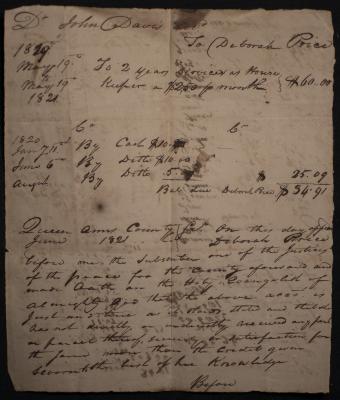 Dr John Davis
To Deborah Price
1819
May 19th To 2 years Services as House
May 19th Keeper a $2.50 p month } $60.00
1821
Cr Cr
1820
Jany 7, 11th By Cash $10
June 6th By Ditto $10.00
Augt By Ditto 5 $ 25.09
Bal. due Deborah Price $ 34.91
Queen Anns County Sct. On this day of
June 182 Deborah Price
before me, the Subscriber one of the Justices
of the peace for the County aforesaid and
made Oath on the Holy Evangelish of
almighty God that the above acct is
Just and true as it stands stated and that she
has not directly or indirectly received any part
or parcel thereof, security or satisfaction for
the same more than the Credit given
the best of her Knowledge
Before